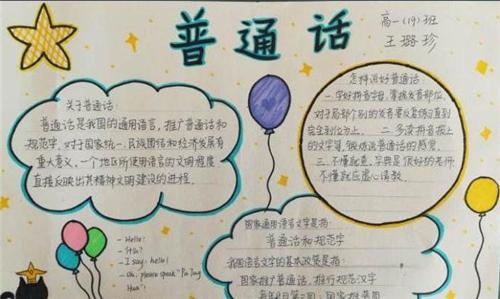 普通话
高一(19)班
王璐珍
关于普通话:
普通话是我国的通用语言,推广普通话和
规范字,对于国家统一、民族团结和经济发展有
重大意义。一个地区所使用语言的文明程度
直接反映出其精神文明建设的进程。
怎样说好普通话:
一.学好拼音字母,掌握发音部位,
对于局部个别的发音要反复练习直到
完全到位为止。 二.多读拼音报上
的文字等,锻炼说普通话的感觉。
三.不懂就查,字典是很好的老师
不懂就应虚心请教。
- Hello!
- I say: hello!
- Oh, please speak "Pu Tong
Hua"!
国家通用语言文字是指:
普通话和规范字
我国语言文字的基本政策是指:
国家推广普通话,推行规范汉字